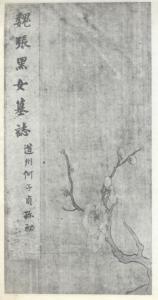 魏張黑女墓誌
道州何子貞孤初